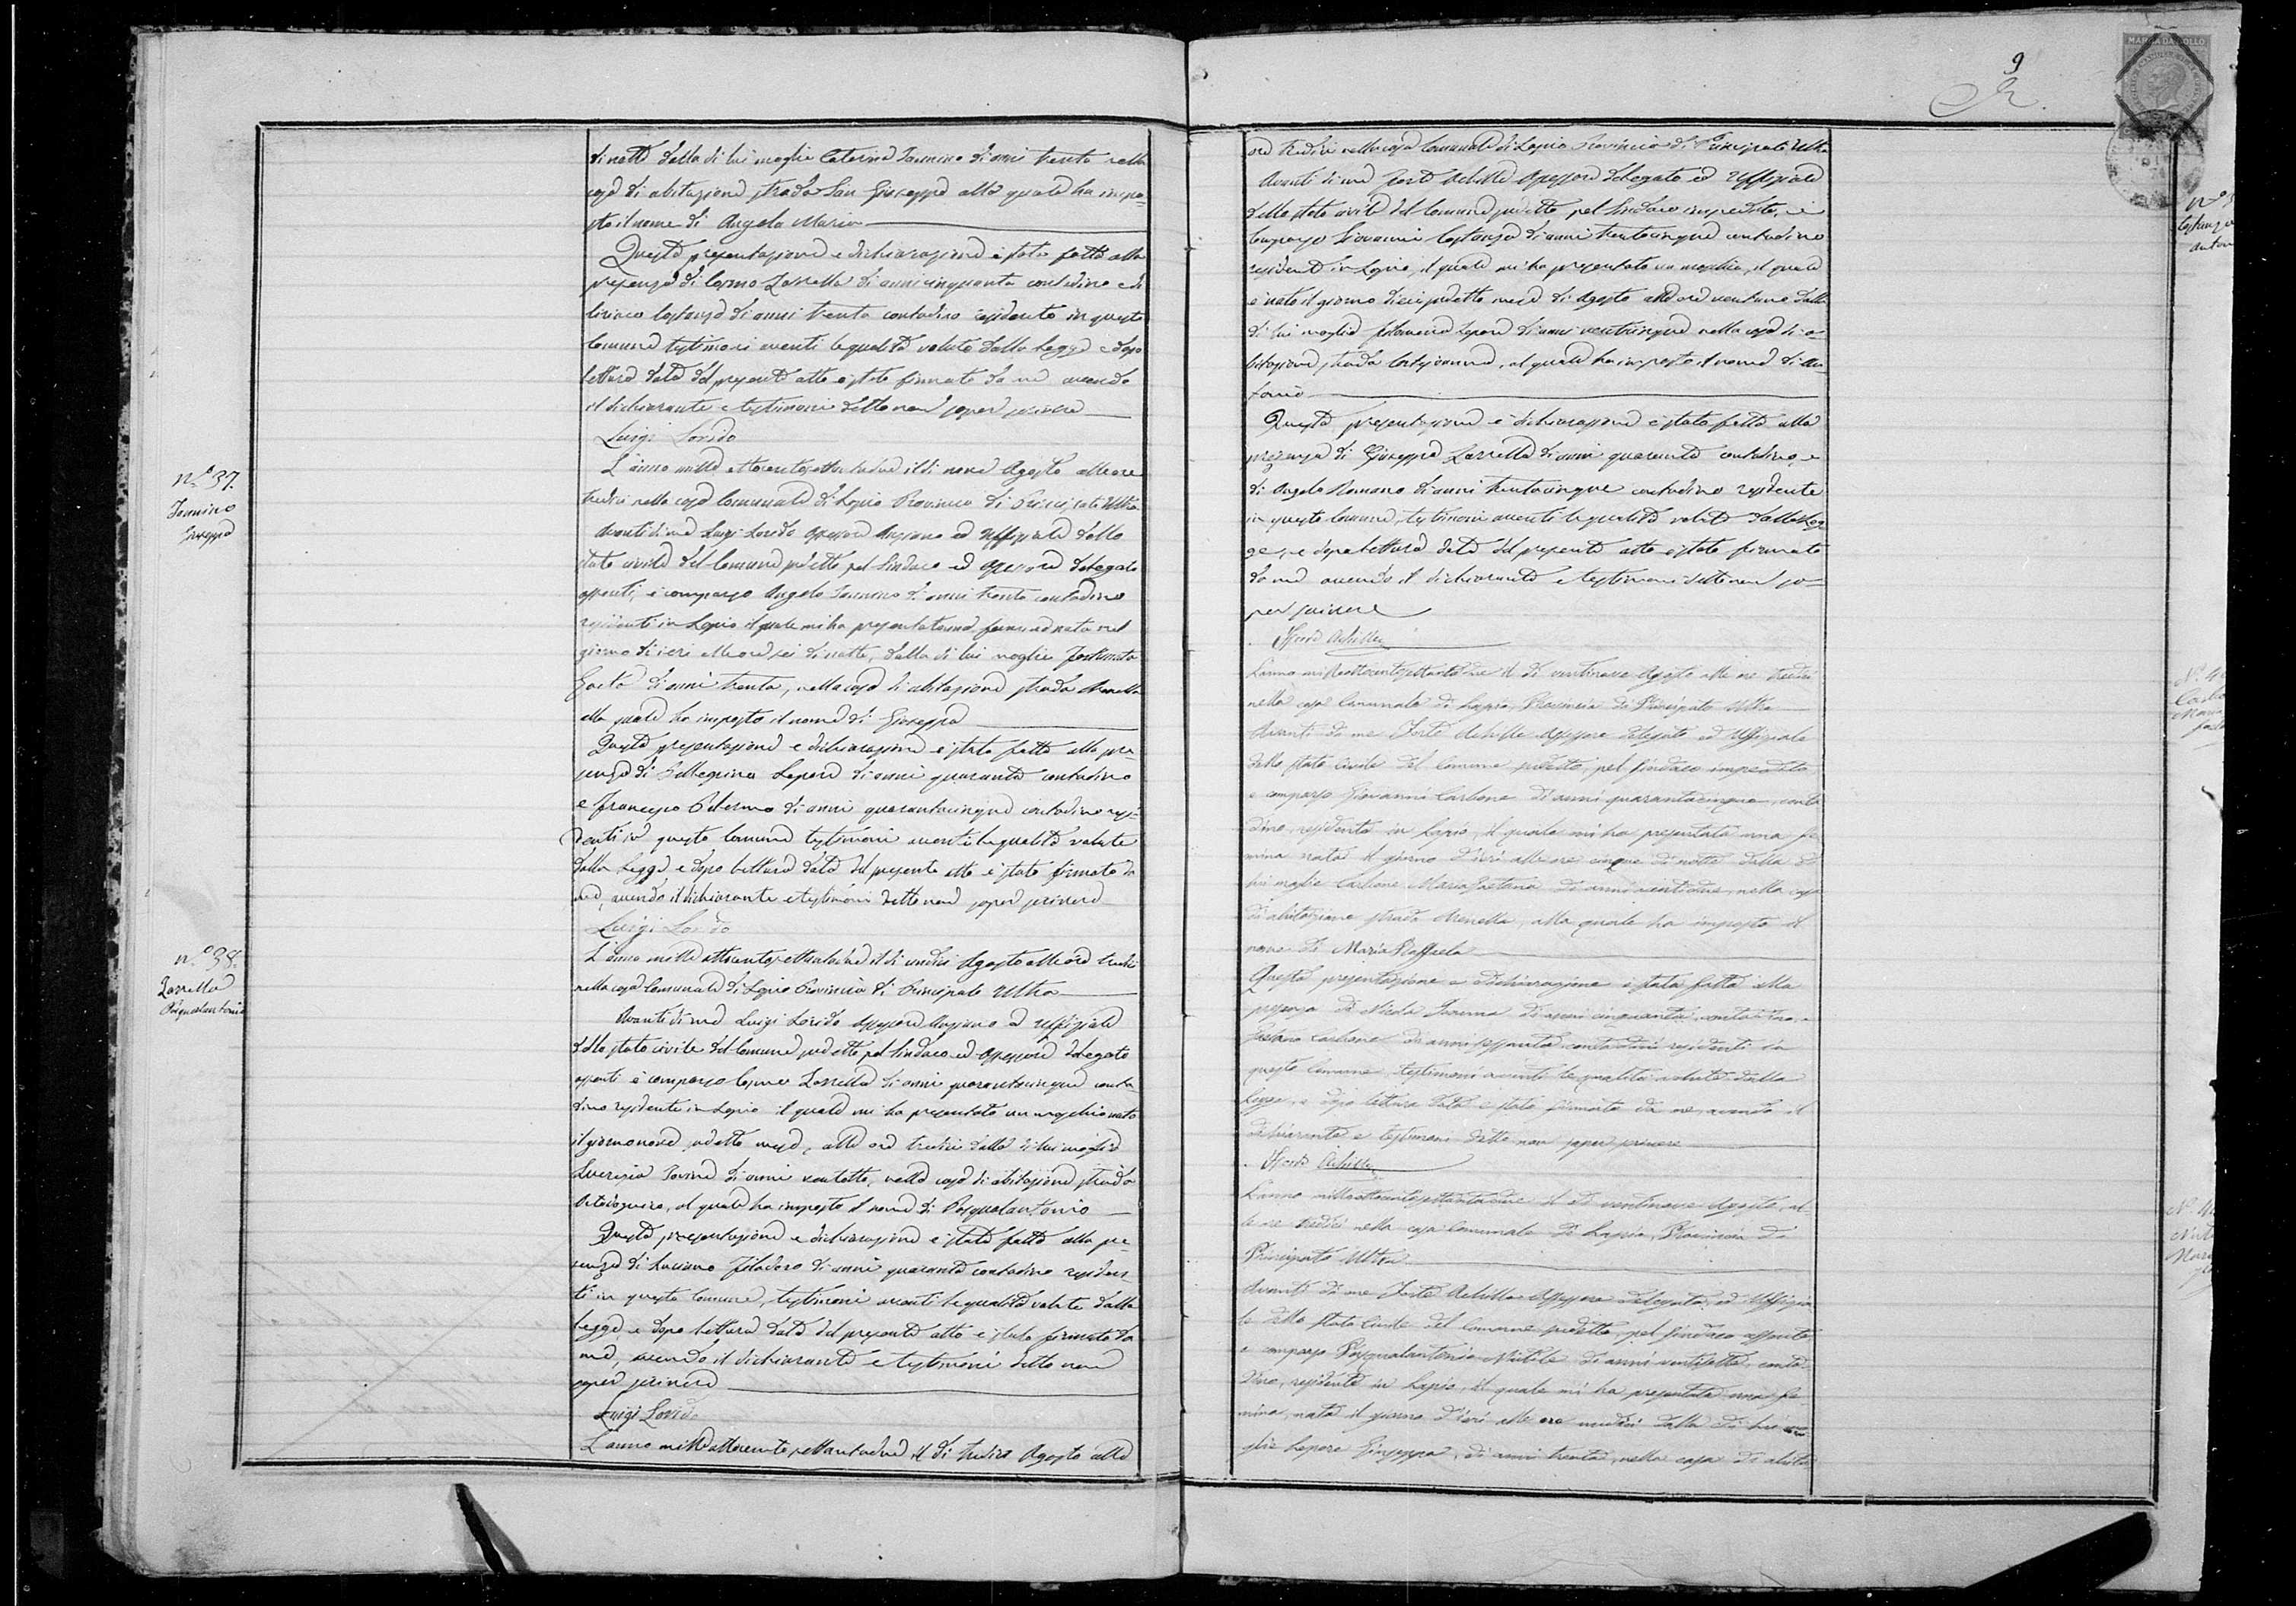 di notte dalla di lui moglie Caterina Iannino di anni trenta nella
casa di abitazione strada San Giuseppe alla quale ha impo-
sto il nome di Angela Maria
Questa presentazione e dichiarazione è stata fatta alla
presenza di Cosmo Zarrella di anni cinquanta contadino e di
Ciriaco Costanza di anni trenta contadino residente in questo
Comune testimoni aventi le qualità volute dalla Legge e dopo
lettura data del presente atto è stato firmato da me avendo
il dichiarante e testimoni detto non saper scrivere
Luigi Lorido
n.° 37.
Iannino
Giuseppa
L'anno mille ottocentosettantadue il di nove Agosto alle ore
tredici nella casa Comunale di Lapio Provincia di Principato Ultra
Avanti di me Luigi Lorido Assessore Anziano ed Uffiziale dello
stato civile del Comune sudetto pel Sindaco ed assessore delegato
assenti, è comparso Angelo Iannino di anni trenta contadino
residenti in Lapio il quale mi ha presentato una femina nata nel
giorno di ieri alle ore sei di notte, dalla di lui moglie Fortunata
di anni trenta, nella casa di abitazione strada Arenella
alla quale ha imposto il nome di Giuseppa
Questa presentazione e dichiarazione è stata fatta alla pre-
senza di Pellegrino Lepore di anni quaranta contadino
e Francesco Palermo di anni quarantacinque contadino resi-
denti in questo Comune testimoni aventi le qualità volute
dalla Legge e dopo lettura data del presente atto è stato firmato da
me, avendo il dichiarante e testimoni detto non saper scrivere
Luigi Lorido
n.° 38.
Zarrella
Pasqualantonio
L'anno mille ottocentosettantadue il di undici Agosto alle ore tredici
nella casa Comunale di Lapio Provincia di Principato Ultra
Avanti di me Luigi Lorido Assessore Anziano ed Uffiziale
dello stato civile del Comune sudetto pel Sindaco ed Assessore delegato
assenti è comparso Cosmo Zarrella di anni quarantacinque conta
dino residente in Lapio il quale mi ha presentato un maschio nato
il giorno nove sudetto mese, alle ore tredici dalla di lui moglie
Lucrezia di anni ventotto, nella casa di abitazione strada
al quale ha imposto il nome di Pasqualantonio
Questa presentazione e dichiarazione è stata fatta alla pre-
senza di Luciano di anni quaranta contadino residen-
ti in questo Comune, testimoni aventi le qualità volute dalla
Legge, e dopo lettura data del presente atto è stato firmato da
me, avendo il dichiarante e testimoni detto non
saper scrivere
Luigi Lorido
L'anno mille ottocentosettantadue il di tredici Agosto alle
9
MARCA DA BOLLO
ore tredici nella casa Comunale di Lapio Provincia di Principato Ultra
Avanti di me Forte Achille Assessore delegato ed Uffiziale
dello stato civile del Comune sudetto pel Sindaco impedito, è
comparso Giovanni Costanza di anni trentacinque contadino
residente in Lapio, il quale mi ha presentato un maschio, il quale
è nato il giorno dieci sudetto mese di Agosto alle ore ventuno dalla
di lui moglie Filomena Lepore di anni venticinque nella casa di a-
bitazione strada, al quale ha imposto il nome di An-
tonio
Questa presentazione e dichiarazione è stata fatta alla
presenza di Giuseppe Zarrella di anni quaranta contadino, e
di Angelo Romano di anni trentacinque contadino residente
in questo Comune, testimoni aventi le qualità volute dalla Leg
ge, e dopo lettura data del presente atto è stato firmato
da me avendo il dichiarante e testimoni detto non sa-
per scrivere
Forte Achille
L'anno milleottocentosettantadue il di ventinove Agosto alle ore tredici
nella casa Comunale di Lapio, Provincia di Principato Ultra
Avanti di me Forte Achille Assessore delegato ed Uffiziale
dello stato Civile del Comune sudetto, pel Sindaco impedito
è comparso Giovanni Carbone di anni quarantacinque, conta
dino, residente in Lapio, il quale mi ha presentata una fe
mina nata il giorno d'ieri alle ore cinque di notte dalla di
lui moglie Carbone Maria Gaetana di anni ventidue, nella casa
di abitazione strada Arenella, alla quale ha imposto il
nome di Maria Raffaela
Questa presentazione e dichiarazione è stata fatta alla
presenza di Nicola di anni cinquanta, contadino, e
Carbone di anni sessanta contadini residenti in
questo Comune, testimoni aventi le qualità volute dalla
Legge, e dopo lettura data è stato firmato da me, avendo il
dichiarante e testimoni detto non saper scrivere
Forte Achille
L'anno milleottocentosettantadue il di ventinove Agosto, al
le ore tredici nella casa Comunale di Lapio, Provincia di
Principato Ultra
Avanti di me Forte Achille Assessore delegato, ed Uffizia
le dello stato Civile del Comune sudetto, pel Sindaco assente
è comparso Pasqualantonio di anni ventisette, conta
dino, residente in Lapio, il quale mi ha presentata una fe
mina, nata il giorno d'ieri alle ore undici dalla di lui mo
glie Lepore Giuseppa, di anni trenta, nella casa di abita